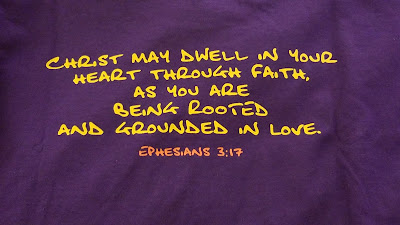 CHRIST MAY DWELL IN YOUR
HEART THROUGH FAITH,
AS YOU ARE
BEING ROOTED
AND GROUNDED IN LOVE.
EPHESIANS 3:17